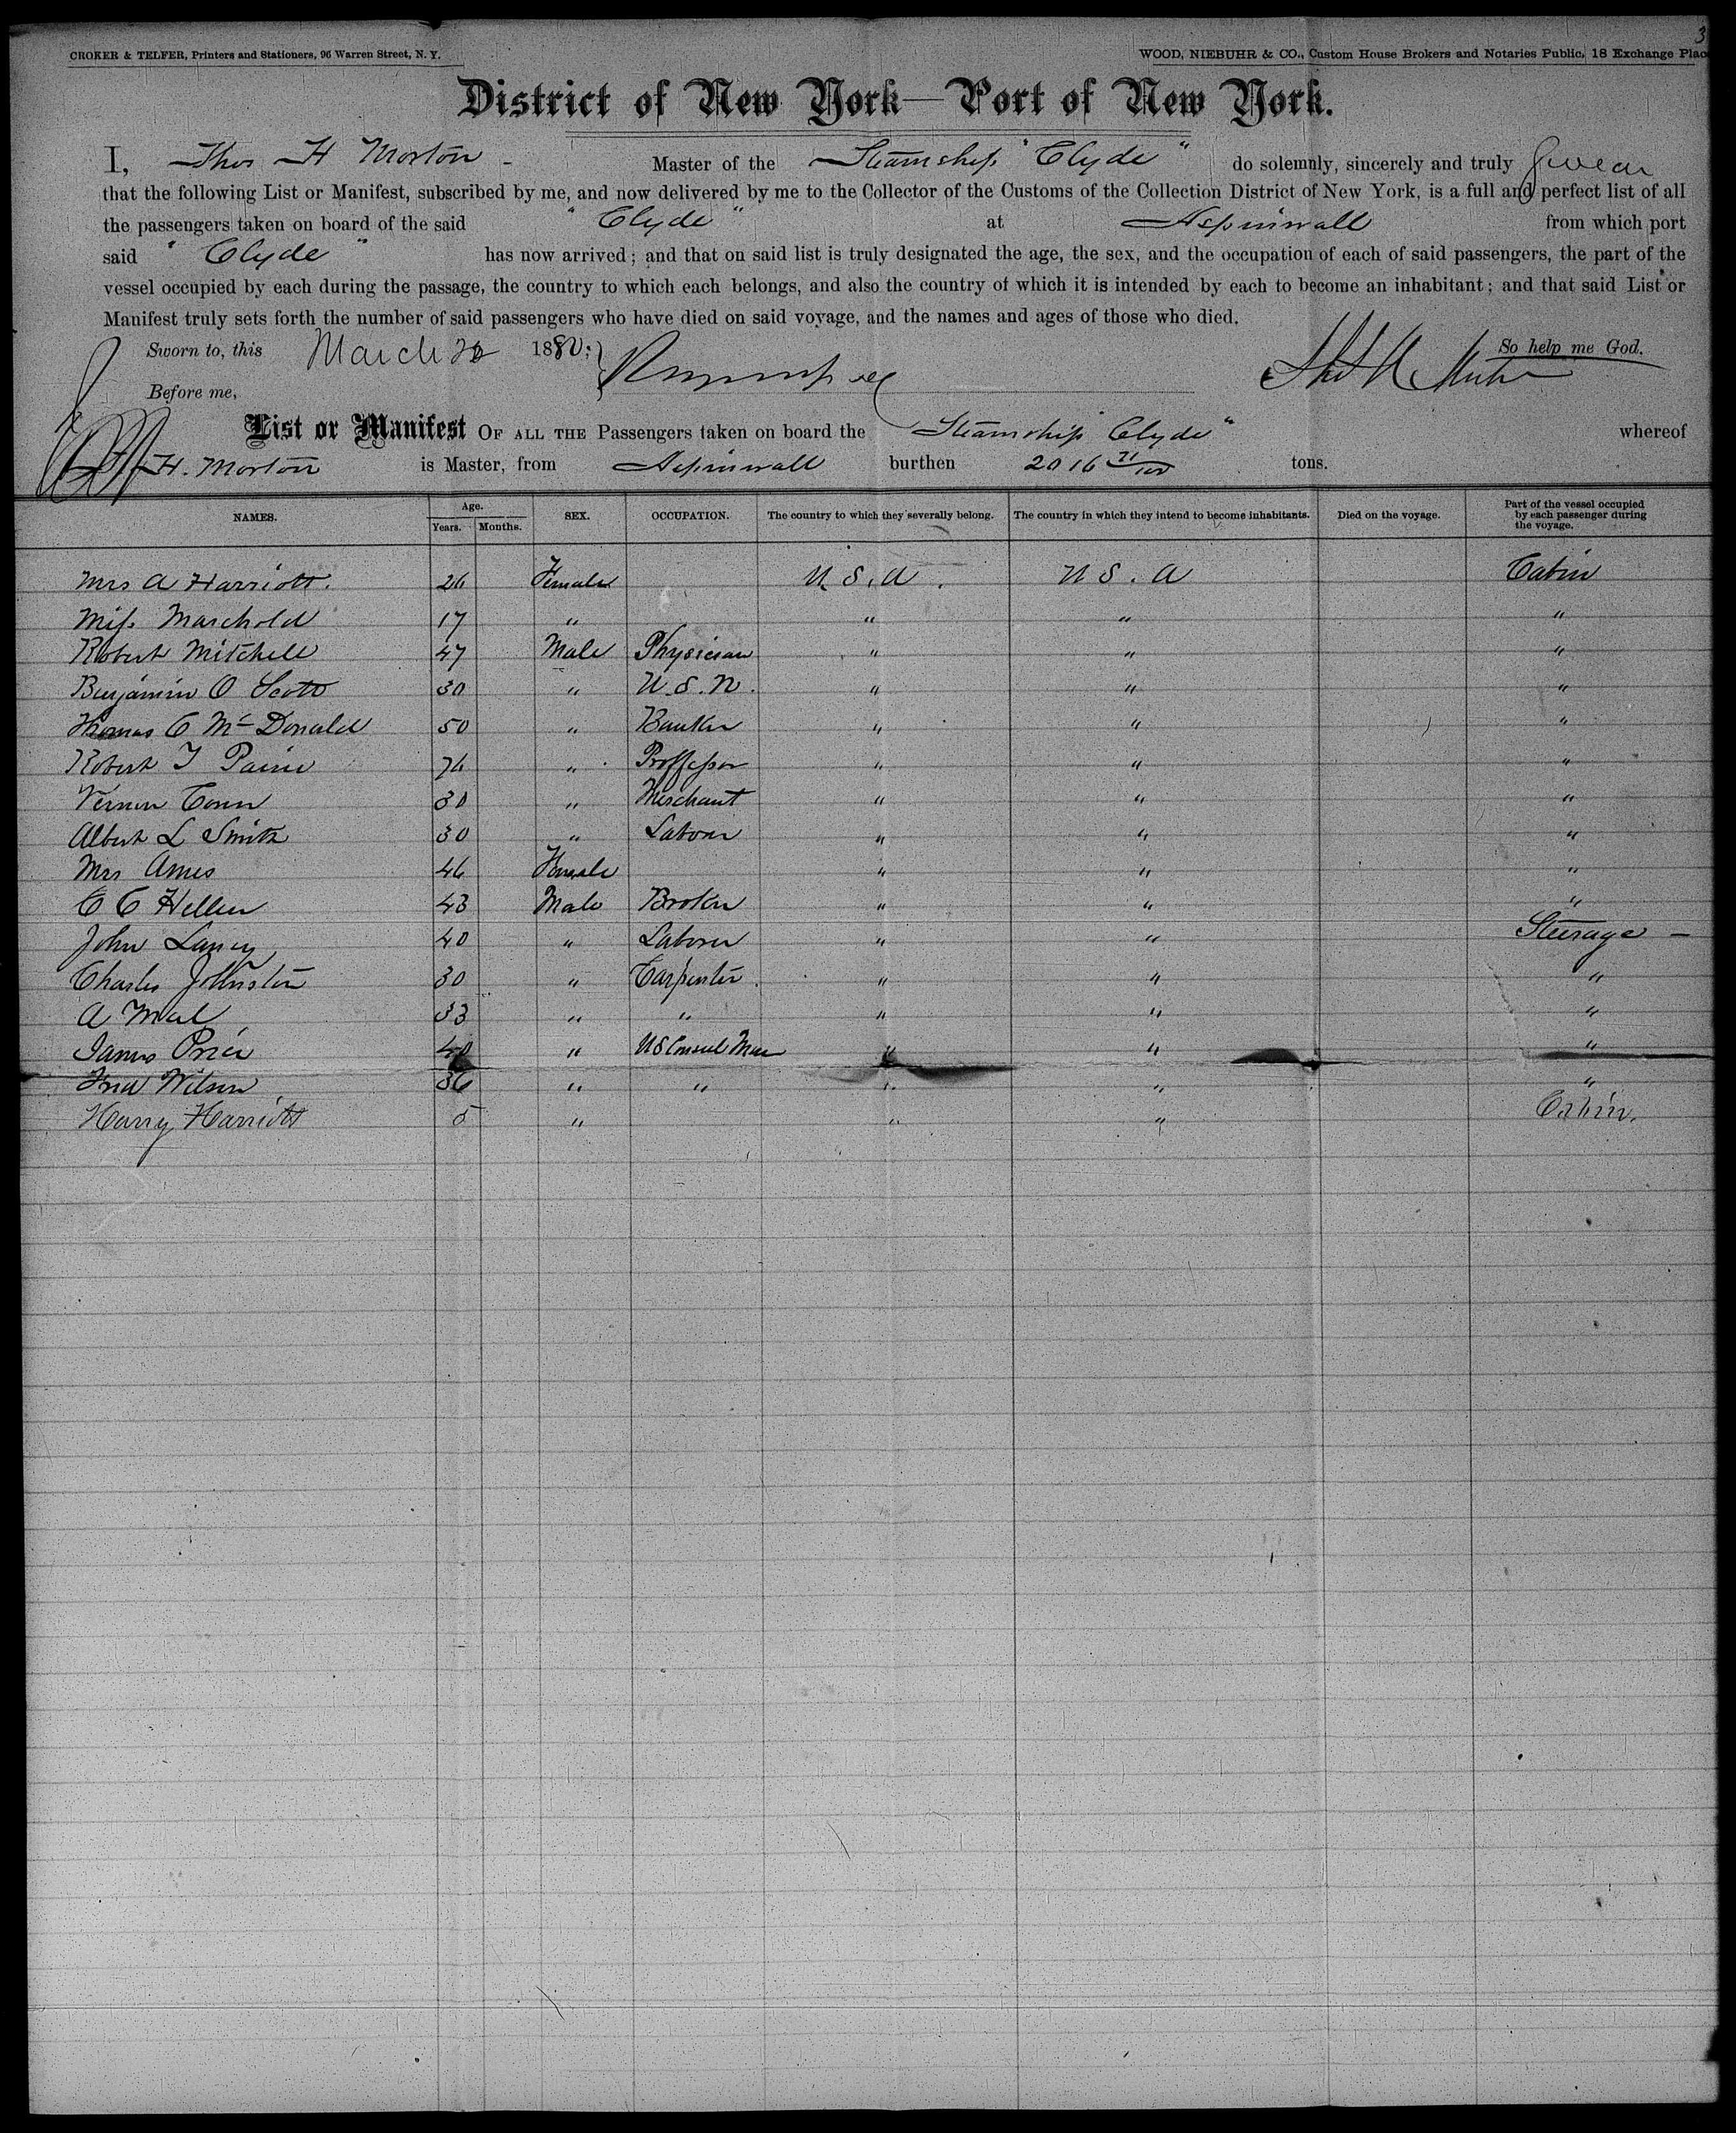 3
CROKER & TELFER, Printers and Stationers, 96 Warren Street, N. Y. WOOD, NIEBUHR & CO., Custom House Brokers and Notaries Public, 18 Exchange Plac
District of New York—Port of New York.
I, Thos H Morton - Master of the Steamship "Clyde" do solemnly, sincerely and truly Swear
that the following List or Manifest, subscribed by me, and now delivered by me to the Collector of the Customs of the Collection District of New York, is a full and perfect list of all
the passengers taken on board of the said "Clyde" at Aspinwall from which port
said "Clyde" has now arrived; and that on said list is truly designated the age, the sex, and the occupation of each of said passengers, the part of the
vessel occupied by each during the passage, the country to which each belongs, and also the country of which it is intended by each to become an inhabitant; and that said List or
Manifest truly sets forth the number of said passengers who have died on said voyage, and the names and ages of those who died.
Sworn to, this March 1880; So help me God.
Before me,
List or Manifest OF ALL THE Passengers taken on board the Steamship Clyde" whereof
H. Morton is Master, from Aspinwall burthen 2016 71/100 tons.
NAMES. Age. Years. Months. SEX. OCCUPATION. The country to which they severally belong. The country in which they intend to become inhabitants. Died on the voyage. Part of the vessel occupied by each passenger during the voyage.
Mrs A Harriott. 26 Female U.S.A. U S. A Cabin
Miss Marchold 17 " " " "
Robert Mitchell 47 Male Physician " " "
Benjamin O Scott 30 " U.S.N. " " "
Thomas C McDonald 50 " Banker " " "
Robert T Paine 76 " Proffessor " " "
Vernon Conn 30 " Merchant " " "
Albert L Smith 30 " Labour " " "
Mrs Ames 46 Female " " "
C C Hellen 43 Male Broker " " "
John Laney 40 " Laborer " " Steerage -
Charles Johnston 30 " Carpenter. " " "
A Mal 33 " " " " "
James Price 40 " US Consul Man " " "
Fred Wilson 36 " " " " "
Harry Harriott 5 " " " Cabin.